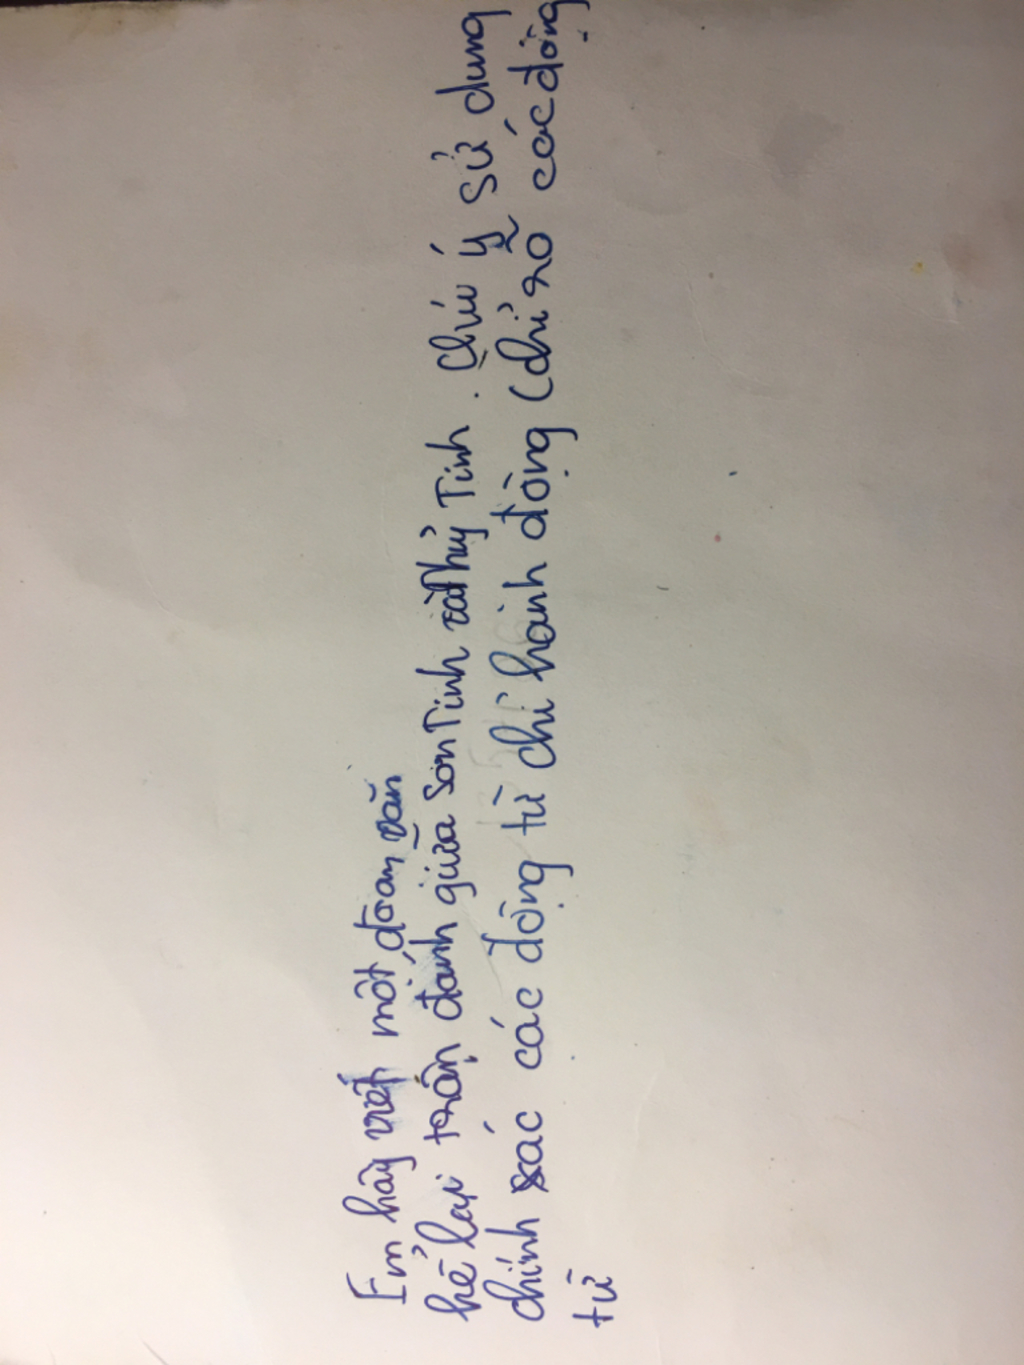 Em hãy viết một đoạn văn
kể lại trận đánh giữa Sơn Tinh và Thủy Tinh. Chú ý sử dụng
chính xác các động từ chỉ hành động (chỉ rõ các động
từ